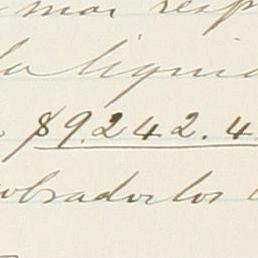 mas resp
la liquid
$9.242.4
obrados los